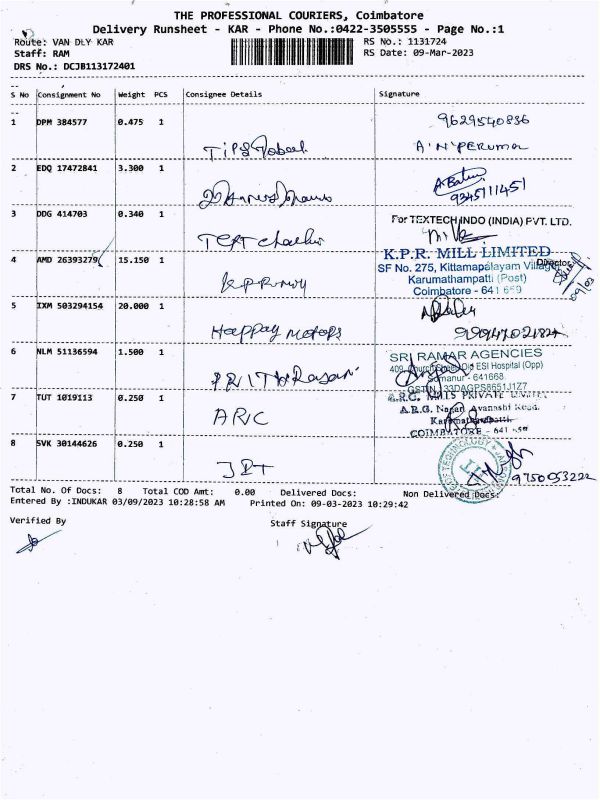 THE PROFESSIONAL COURIERS, Coimbatore
Delivery Runsheet - KAR - Phone No.:0422-3505555 - Page No.:1
Route: VAN DLY KAR
RS No.: 1131724
Staff: RAM
RS Date: 09-Mar-2023
DRS No.: DCJB113172401
S No Consignment No Weight PCS Consignee Details Signature
1 DPM 384577 0.475 1
9629540836
A.N PERUMAL
2 EDQ 17472841 3.300 1
9345111451
3 DDG 414703 0.340 1
For TEXTECH INDO (INDIA) PVT. LTD.
Director
4 AMD 26393279 15.150 1
K.P.R. MILL LIMITED
SF No. 275, Kittampalayam Village
Karumathampatti (Post)
Coimbatore - 641 659
5 IXM 503294154 20.000 1
Happay motors
6 NLM 51136594 1.500 1
SRI RAMAR AGENCIES
409, Church Old ESI Hospital (Opp)
Somanur - 641668
7 TUT 1019113 0.250 1
ARC
A.R.C. PRIVATE LIMITED
Avanashi Road,
Karumathampatti
COIMBATORE - 641
8 SVK 30144626 0.250 1
TECHNOLOGY
9750053222
Total No. Of Docs: 8 Total COD Amt: 0.00 Delivered Docs: Non Delivered Docs:
Entered By :INDUKAR 03/09/2023 10:28:58 AM Printed On: 09-03-2023 10:29:42
Verified By
Staff Signature